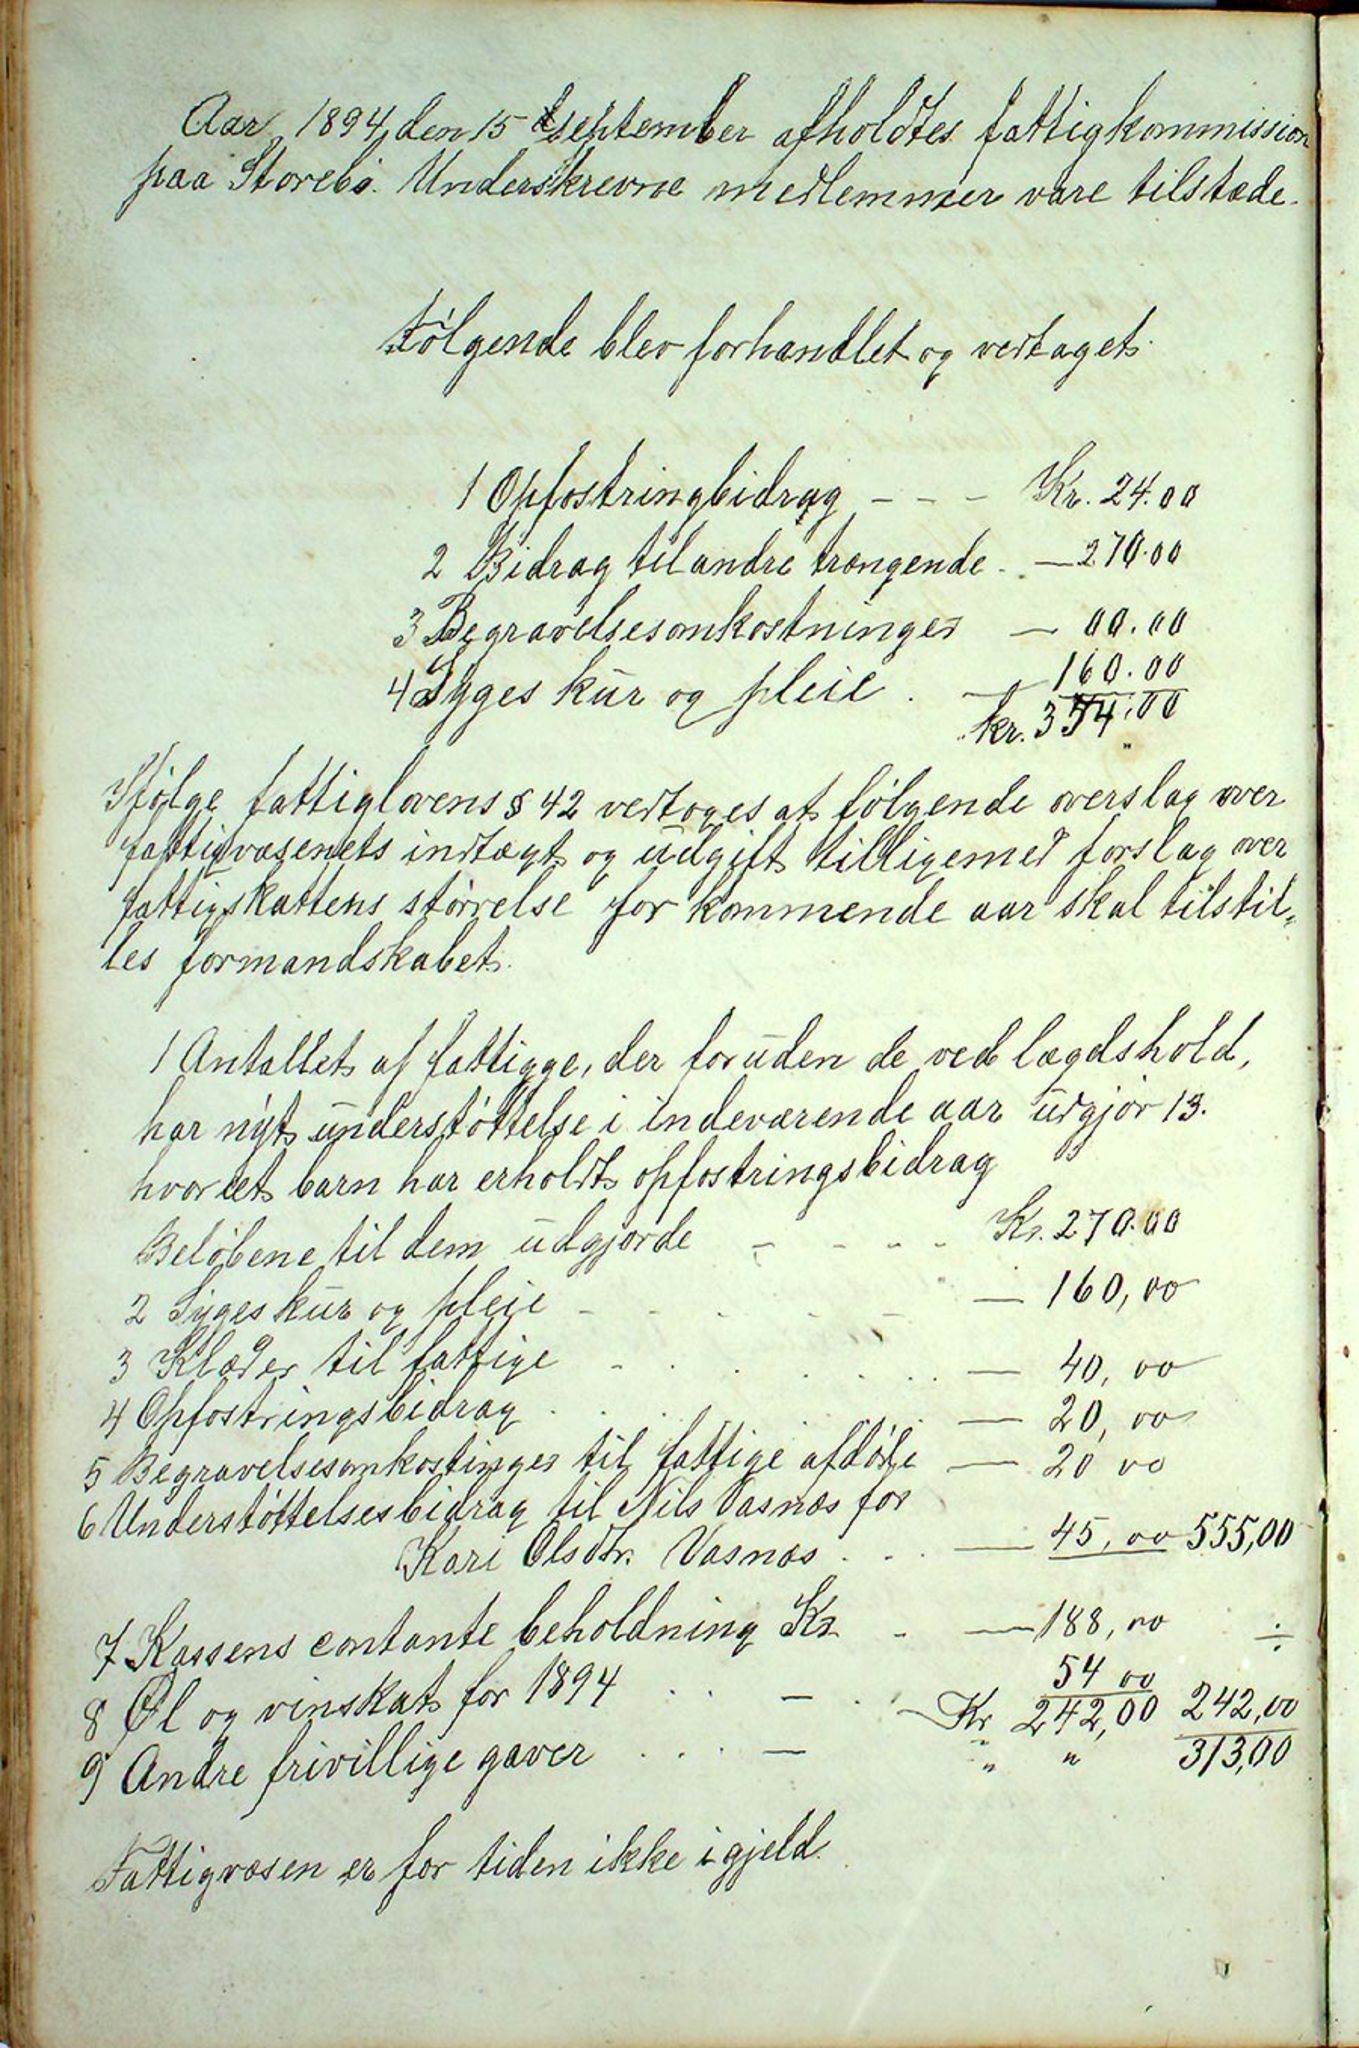 Aar 1894 den 15 september afholdtes fattigkommission
paa Storebö. Underskrevne medlemmer vare tilstæde.
Følgende blev forhandlet og vedtaget.
1 Opfostringbidrag - - - Kr. 24.00
2 Bidrag til andre trængende. — 270.00
3 Begravelsesomkostninger — 00.00
4 Syges kur og pleie . — 160.00
kr. 354.00
Ifølge fattiglovens § 42 vedtoges at følgende overslag over
fattigvæsenets indtægt og udgift tilligemed forslag over
fattigskattens størrelse for kommende aar skal tilstil„
les formandskabet.
1 Antallet af fattigge, der foruden de ved lægdshold,
har nyt understøttelse i indeværende aar udgjør 13.
hvor et barn har erholdt opfostringsbidrag
Beløbene til dem udgjorde - - - - Kr. 270.00
2 Syges kur og pleie - - . . - — 160,00
3 Klæder til fattige - . . . . . — 40,00
4 Opfostringsbidrag . . . . — 20,00
5 Begravelsesomkostinger til fattige afdøde — 20 00
6 Understøttelsesbidrag til Nils Vasnæs for
Kari Olsdtr. Vasnæs . . . — 45,00 555,00
7 Kassens contante beholdning Kr. - — 188,00 ÷
8 Øl og vinskat for 1894 . . — . 54 00
Kr 242,00 242,00
9 Andre frivillige gaver . . . — „ „ 313,00
Fattigvæsen er for tiden ikke i gjeld.